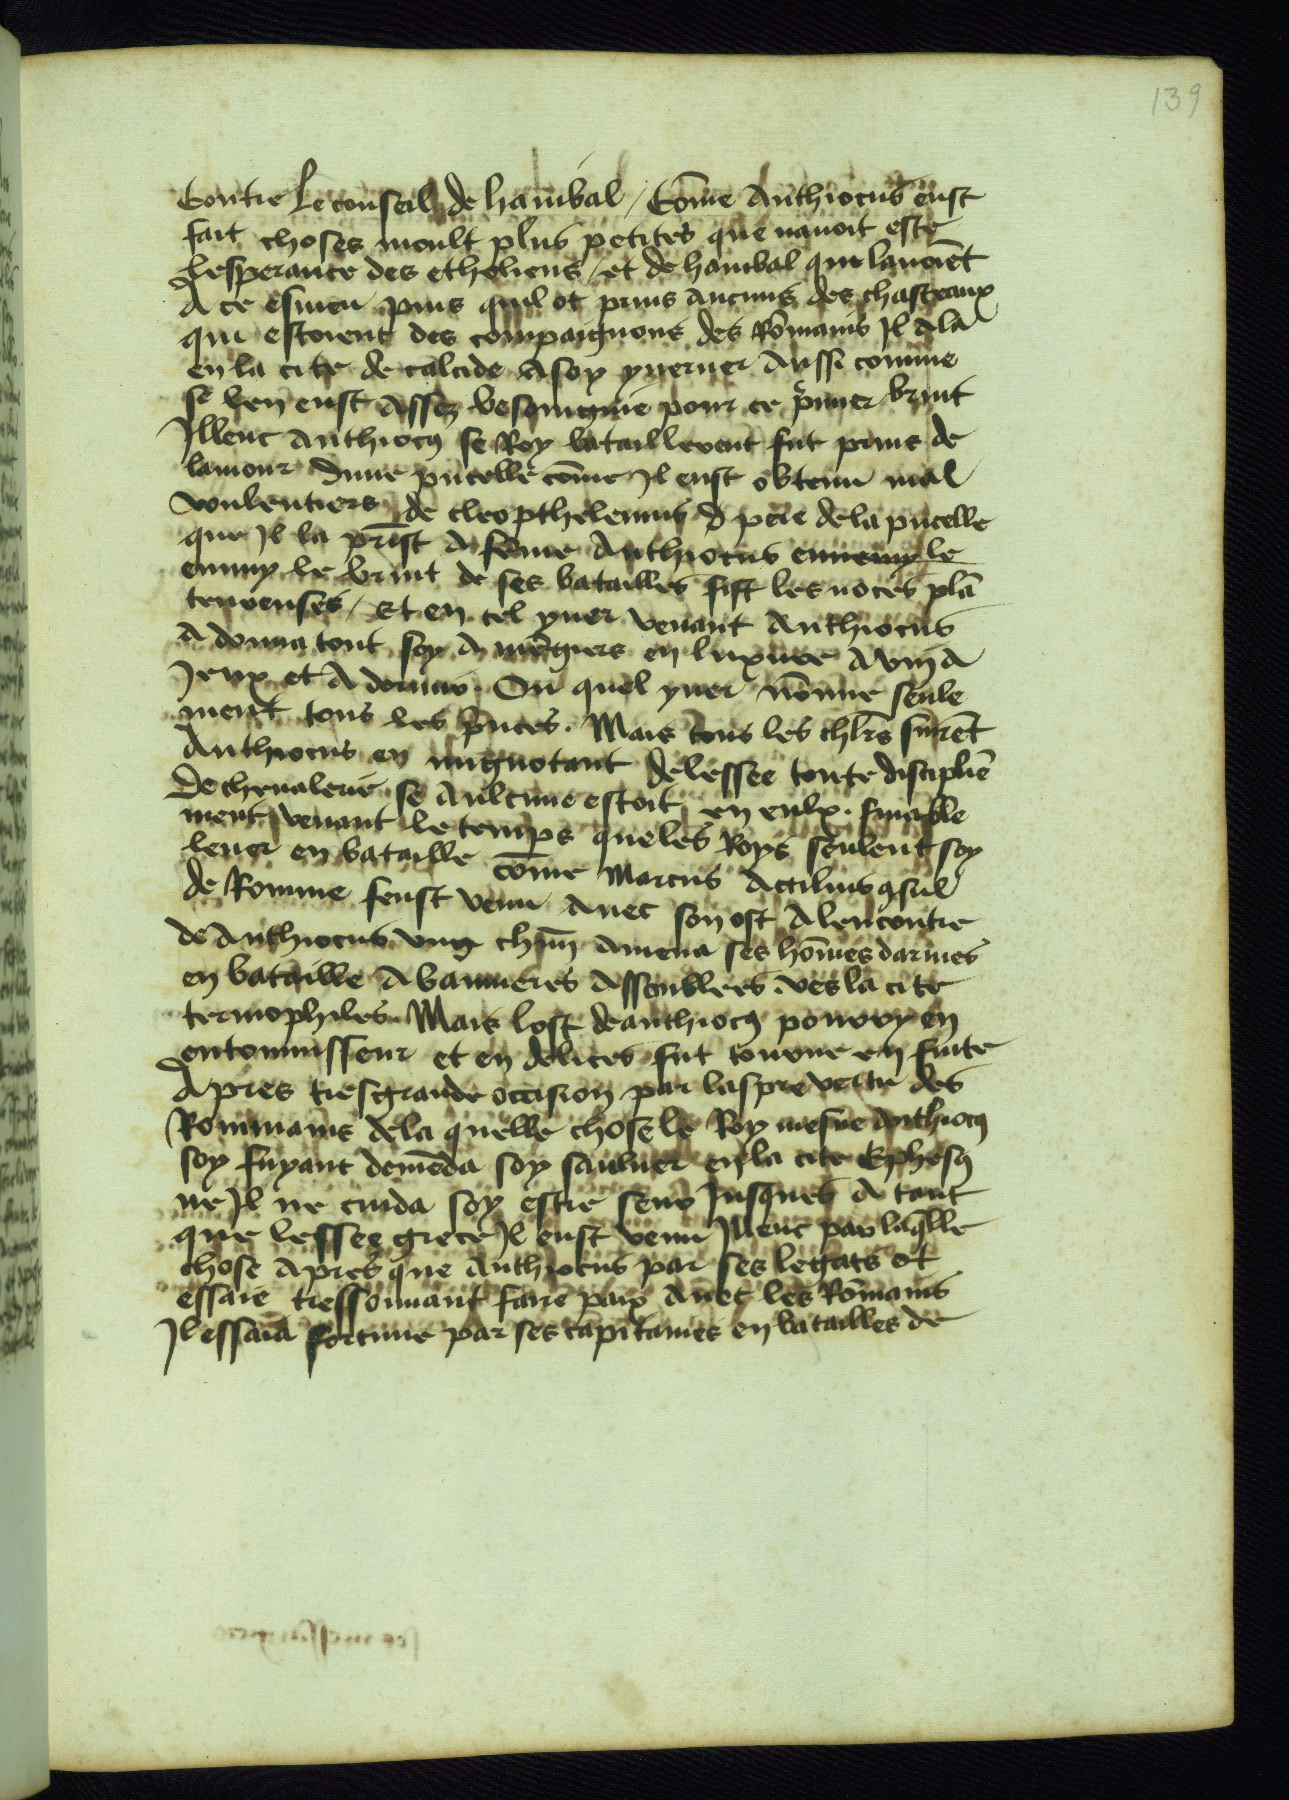 139
Contre Le conseil de hanibal / Cōme Anthiocus eust
fait choses moult plus petites que nauoit este
Lesperance des etholiens / et de hanibal qui lauoiēt
A ce esmeu puis quil ot prins Aucuns des chasteaux
qui estoient des compaignons des Rōmains Jl Ala
en la cite de calcide A soy yuerner Aussi comme
se len eust Assez besoingnie pour ce p̄mier bruit
Jlleuc Anthiocꝯ se Roy bataillereut fut prins de
lamour dune pucelle cōme Jl eust obtenu mal
voulentiers de cleopthelemus d pere de la pucelle
que Jl la prist A fēme Anthiocus ennemy le
emmy le bruit de ses batailles fist les noces plā
tenreuses / Et en cel yuer venant Anthiocus
A donna tout soy A mēgiers en luxure A vin A
Jeux et A dormir. Ou quel yuer nōmie seule
ment tous les p̄nces. Mais tous les chl̄rs suirēt
Anthiocus en mignotant delessee toute disciplīe
De cheualerie se Aulcune estoit en eulx. finable
ment venant le temps que les Roys seulent soy
leuer en bataille cōme Marcus Actilius ꝯsul
de Romme feust venu Auec son ost A lencontre
de Anthiocus vng chūn Amena ses hōmes darmes
en bataille A bannieres Assemblees. vers la cite
termophiles. Mais lost de anthiocꝯ pourry en
entomisseur et en delices fut tourne en fuite
Apres tresgrande occision par laspre vertu des
Rommains de la quelle chose le Roy mesme Anthiocꝯ
soy fuyant demēda soy sauluer en la cite Ephesꝯ
ne Jl ne cuida soy estre seur Jusques A tant
que lessee grece Jl eust venu Jlleuc par laq̄lle
chose Apres que Anthiocus par ses legats ot
essaie tressouuant faire paix Auec les Rōmains
Jl essaia fortune par ses capitaines en batailles de